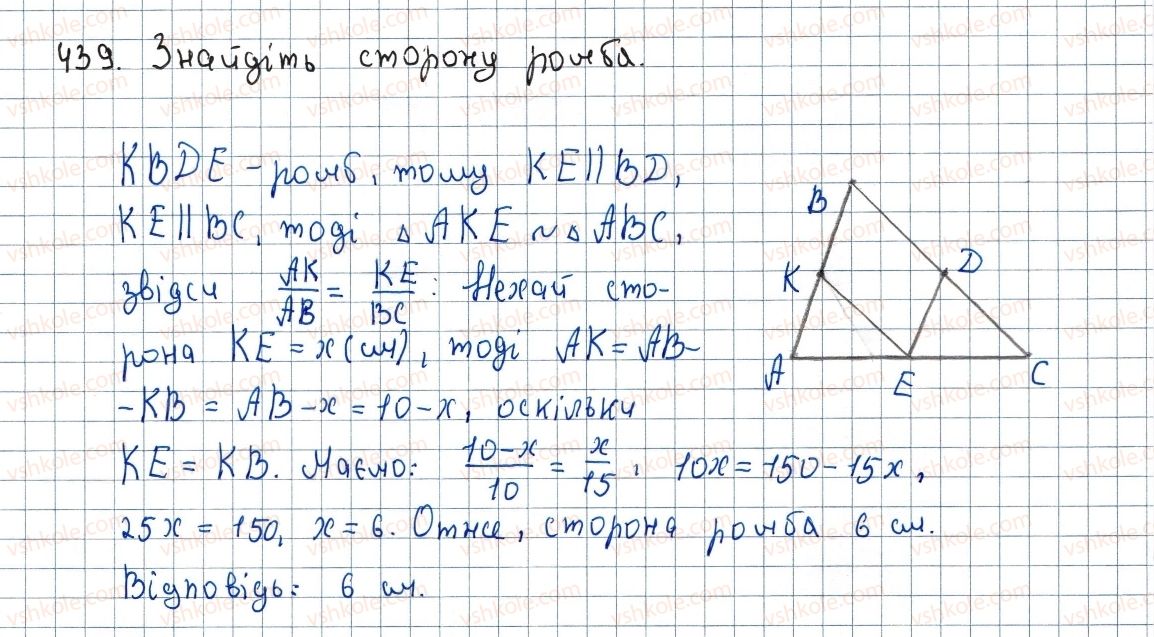 439. Знайдіть сторону ромба.
KBDE - ромб, тому KE||BD,
KE||BC, тоді △AKE ~ △ABC,
звідси AK/AB = KE/BC. Нехай сто-
рона KE = x (см), тоді AK = AB-
-KB = AB - x = 10 - x, оскільки
KE = KB. Маємо: (10-x)/10 = x/15, 10x = 150 - 15x,
25x = 150, x = 6. Отже, сторона ромба 6 см.
Відповідь: 6 см.
B
K
D
A
E
C
vshkole.com